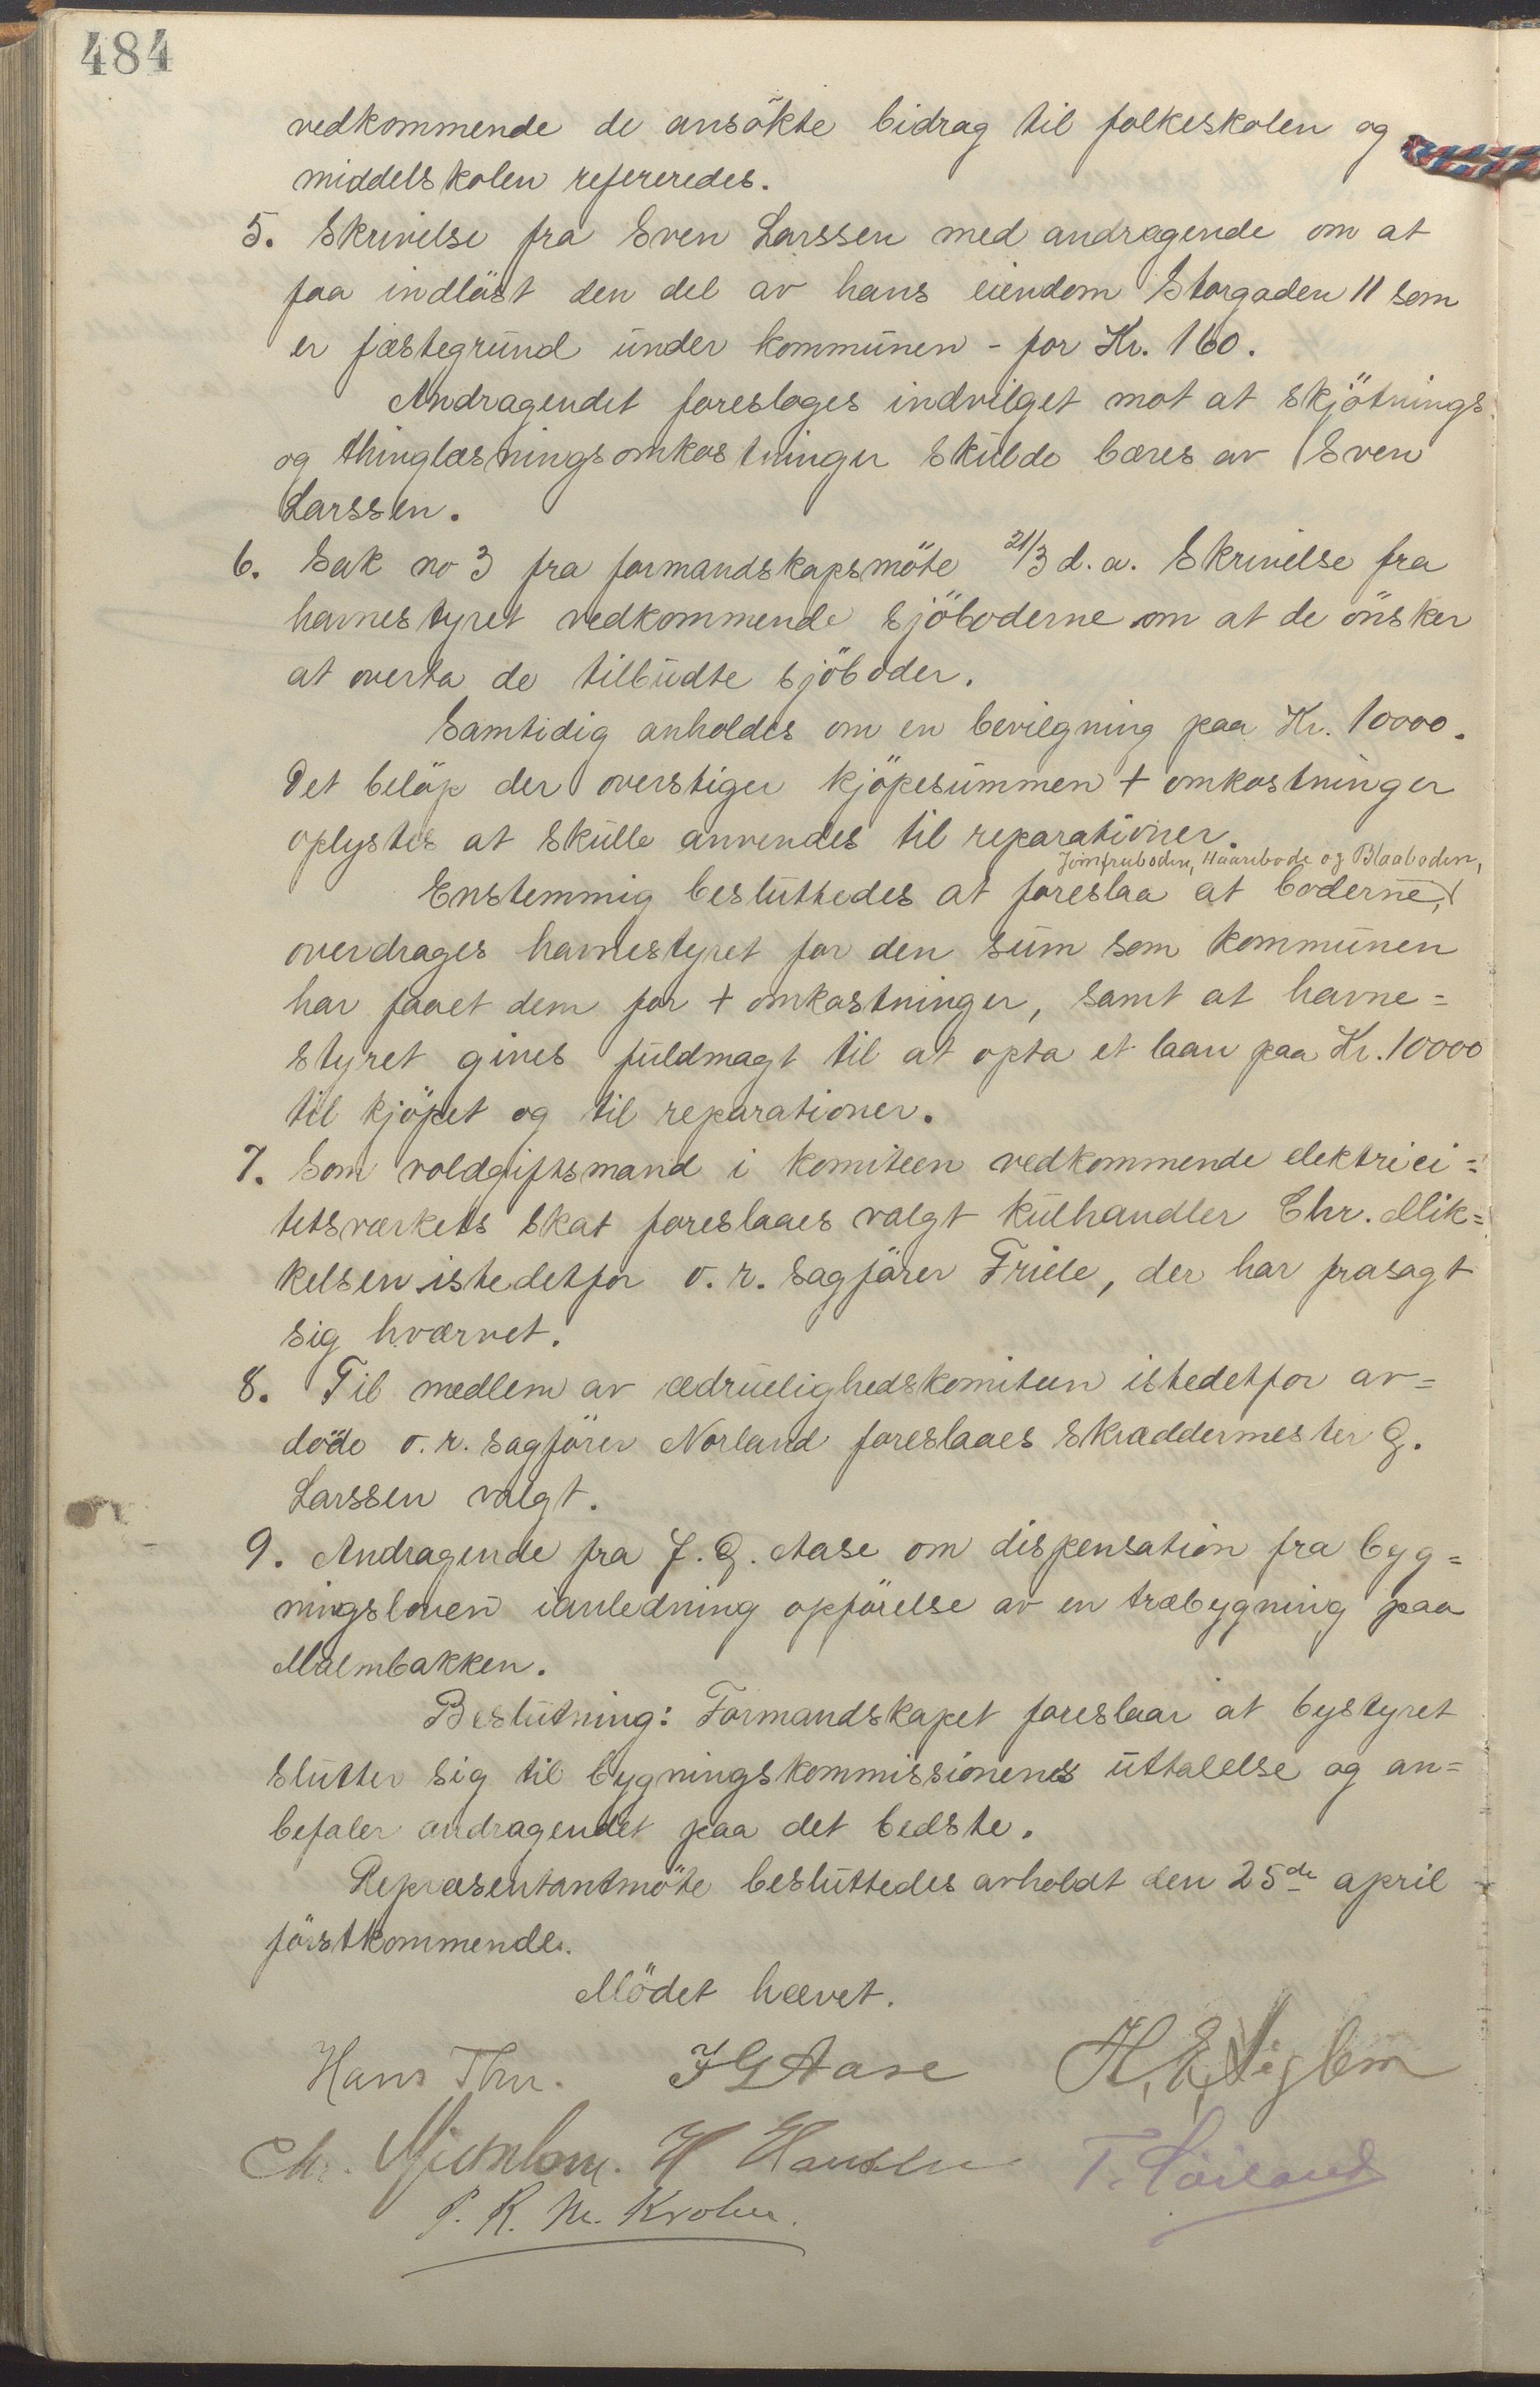 484
vedkommende de ansökte bidrag til folkeskolen og
middelskolen refereredes.
5. Skrivelse fra Sven Larssen med andragende om at
faa indlöst den del av hans eiendom Storgaden 11 som
er fæstegrund under kommunen - for Kr. 160.
Andragendet foresloges indvilget mot at skjötnings-
og thinglæsningsomkostninger skulde bæres av Sven
Larssen.
6. Sak no 3 fra formandskapsmöte 21/3 d.a. Skrivelse fra
havnestyret vedkommende sjöboderne om at de önsker
at overta de tilbudte sjöboder.
Samtidig anholdes om en bevilgning paa Kr. 10000.
Det beløp der overstiger kjöpesummen + omkostninger
oplystes at skulle anvendes til reparationer.
Jomfruboden, Haanbode og Blaaboden,
Enstemmig besluttedes at foreslaa at boderne,
overdrages havnestyret for den sum som kommunen
har faaet dem for + omkostninger, samt at havne=
styret gives fuldmagt til at opta et laan paa Kr. 10000
til kjöpet og til reparationer.
7. Som voldgiftsmand i komiteen vedkommende elektrici=
tetsværkets skat foreslaaes valgt kulhandler Chr. Mik=
kelsen istedetfor o.r. sagförer Friele, der har frasagt
sig hværvet.
8. Til medlem av ædruelighedskomiteen istedetfor av=
döde o.r. sagförer Norland foreslaaes skræddermester G.
Larssen valgt.
9. Andragende fra J. G. Aase om dispensation fra byg=
ningsloven ianledning opförelse av en træbygning paa
Malmbakken.
Beslutning: Formandskapet foreslaar at bystyret
slutter sig til bygningskommissionens uttalelse og an=
befaler andragendet paa det bedste.
Repræsentantmöte besluttedes avholdt den 25de april
förstkommende.
Mödet hævet.
Hans Thu. J G Aase H. E.
Chr. H Hansen T.
P. R. M. Krohn.